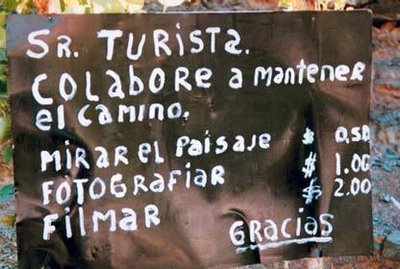 SR. TURISTA.
COLABORE a mantener
el camino.
mirar el Paisaje $ 0.50
FOTOGRAFIAR $ 1.00
Filmar $ 2.00
GRacias